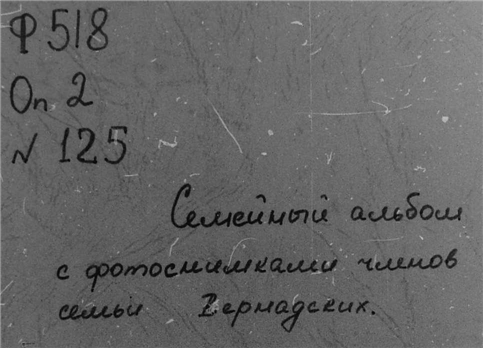 Ф 518
Оп. 2
N 125
Семейный альбом
с фотоснимками членов
семьи Вернадских.